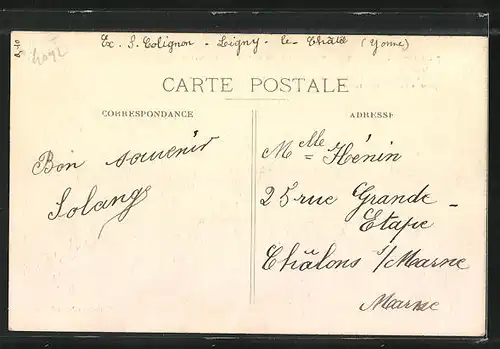 Ex. S. Colignon - Ligny - le - Châtel (Yonne)
CARTE POSTALE
CORRESPONDANCE
ADRESSE
Bon souvenir
Solange
Melle Hénin
25 rue Grande-
Etape
Châlons s/Marne
Marne